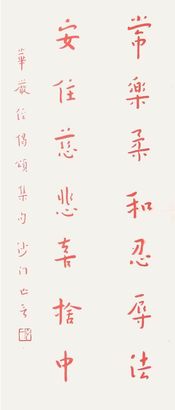 常樂柔和忍辱法
安住慈悲喜捨中
華嚴經偈頌集句 沙門亡言